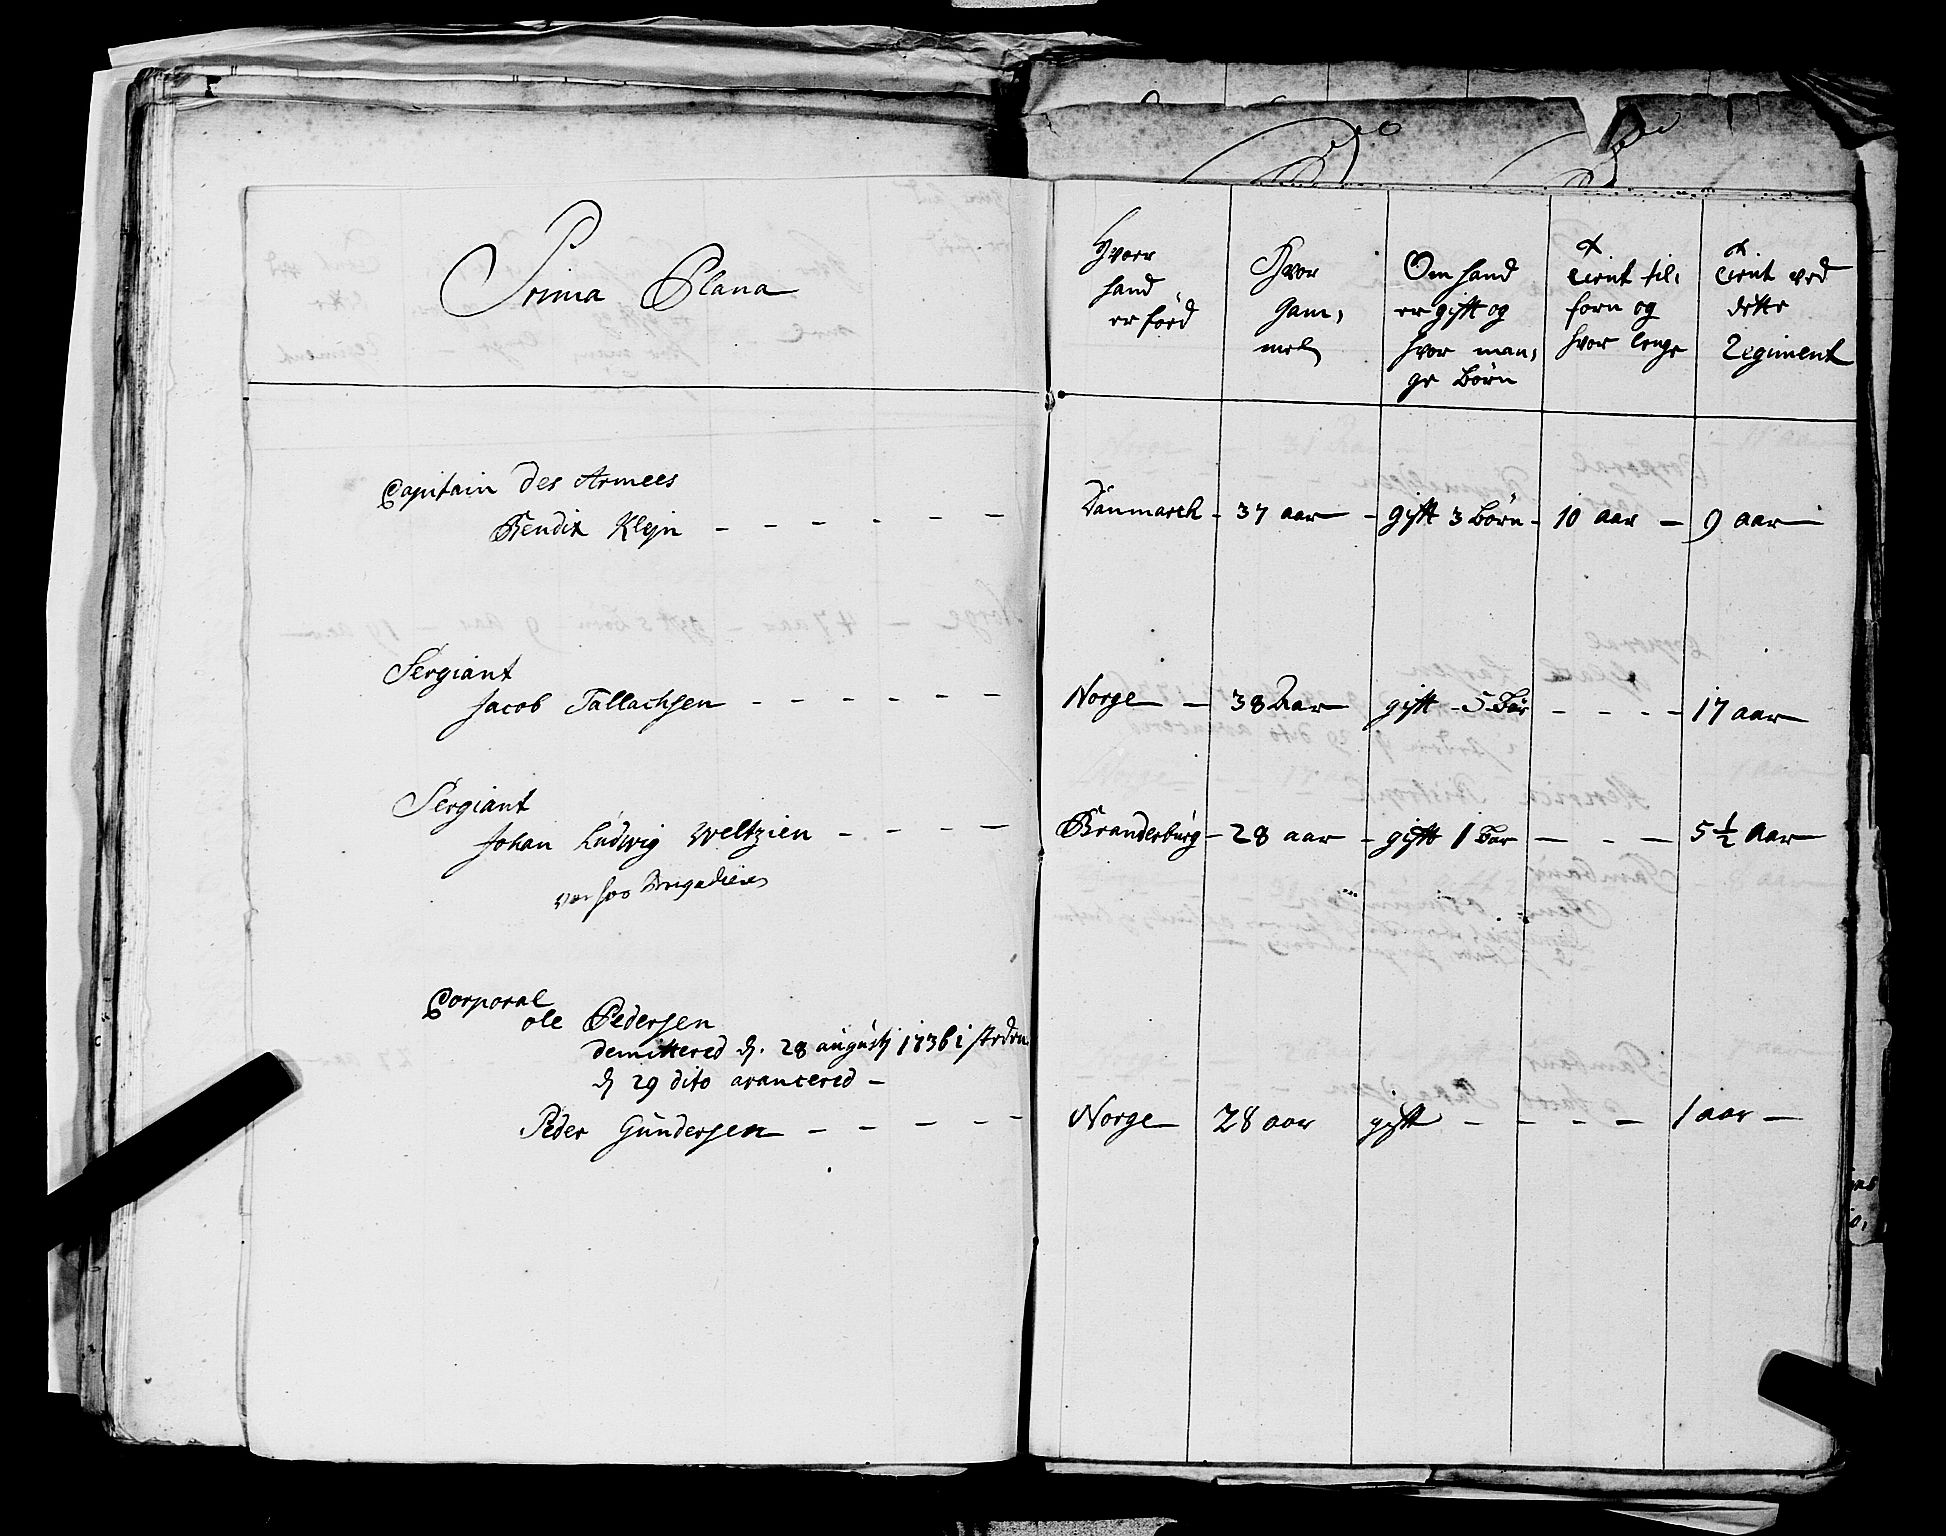 Prima Plana
Hvor
hand
er föed
Hvor
Gam,
mel
Om hand
er gift og
hvor man,
ge Börn
tient til,
forn og
hvor lenge
tient ved
dette
Regiment
Capitain des Armees
Bendix Klejn - - - - - - Danmarck - 37 aar - gift 3 Börn - 10 aar - 9 aar
Sergiant
Jacob Tallachsen - - - - - Norge - 38 Aar gift - 5 Bör - - - - 17 aar
Sergiant
Johan Ludwig Weltzien - - - - Brandenburg - 28 aar - gift 1 Bar - - - 5 ½ Aar
Corporal
ole Pedersen
demittered d. 28 augustj 1736 i steden
d 29 dito avancered -
Peder Gundersen - - - - - Norge 28 aar gift - - - - 1 aar -